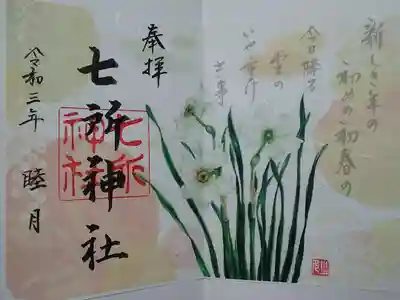 新しき年の
初めの初春の
今日降る
雪の
いや重け
吉事
奉拝
七所神社
七所
神社
令和三年 睦月